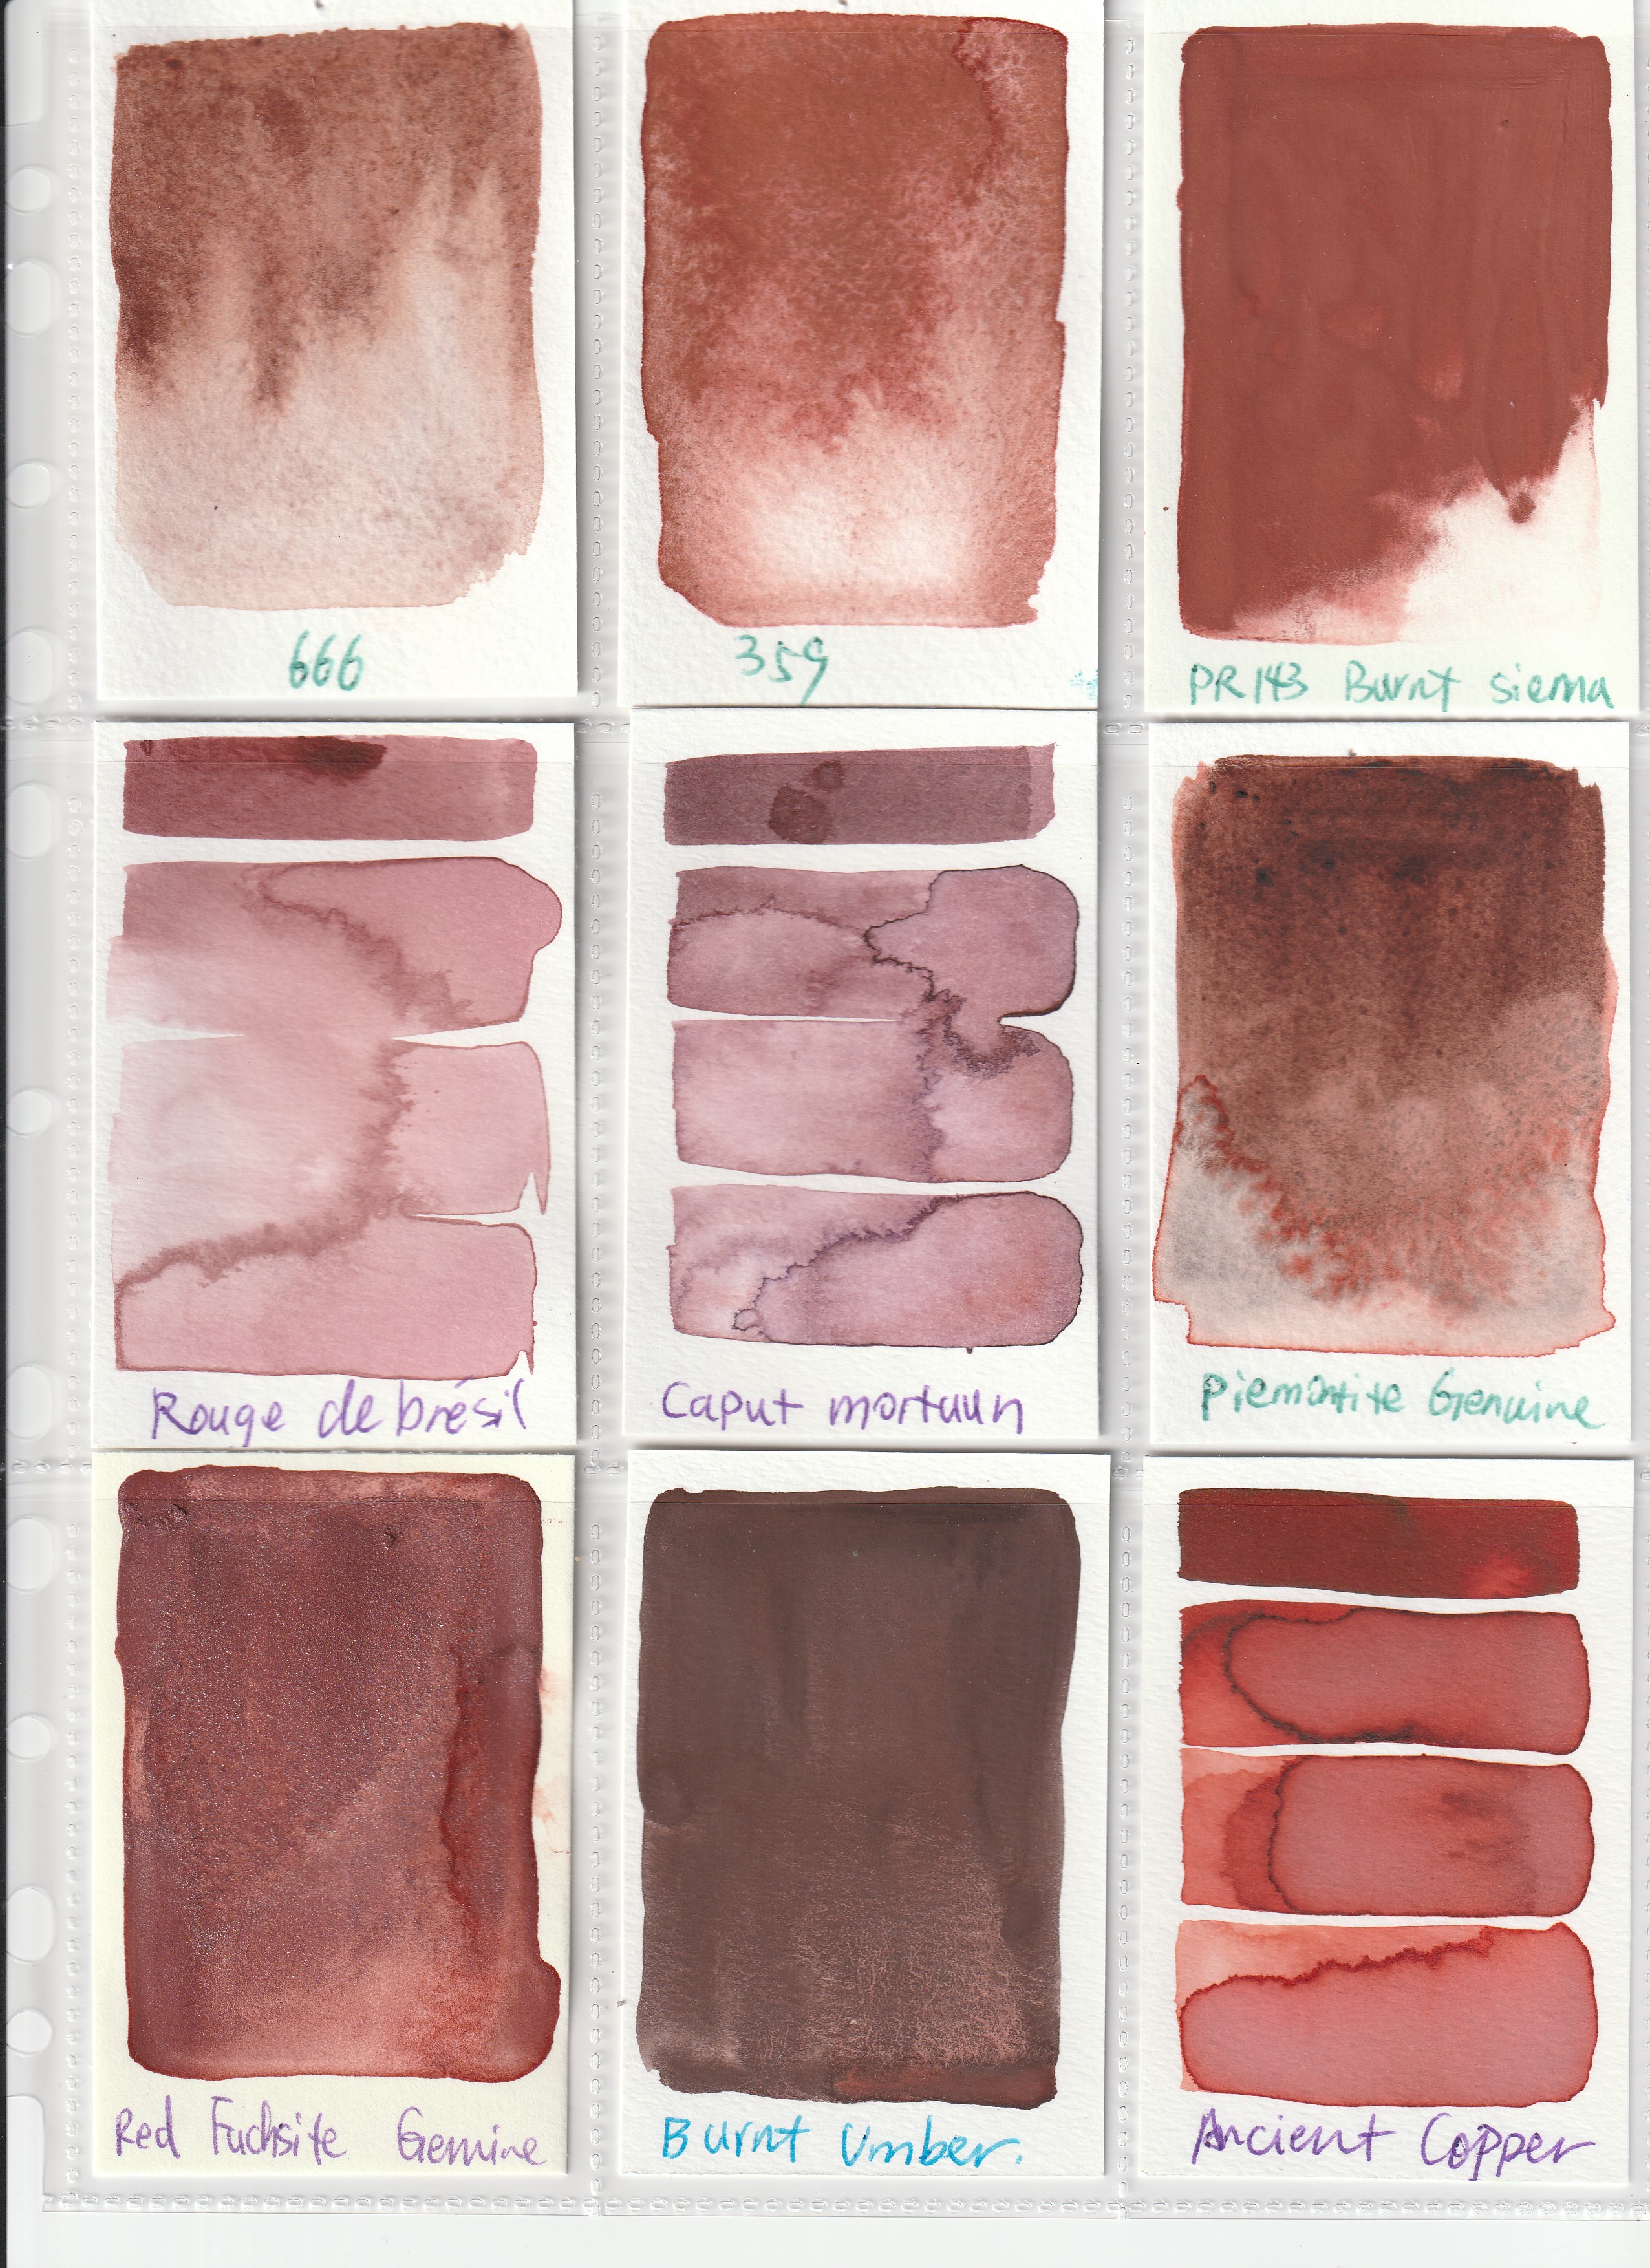 666
359
PR143 Burnt sienna
Rouge de brésil
Caput mortuun
Piemontite Genuine
Red Fuchsite Genuine
Burnt Umber.
Ancient Copper